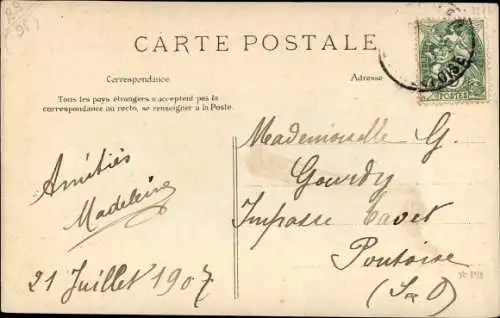 CARTE POSTALE
Correspondance
Adresse
Tous les pays étrangers n'acceptent pas la
correspondance au recto, se renseigner à la Poste.
OISE
POSTES
Amitiés
Madeleine
21 Juillet 1907
Mademoiselle G.
Gourdy
Impasse Tavet
Pontoise
(S&O)